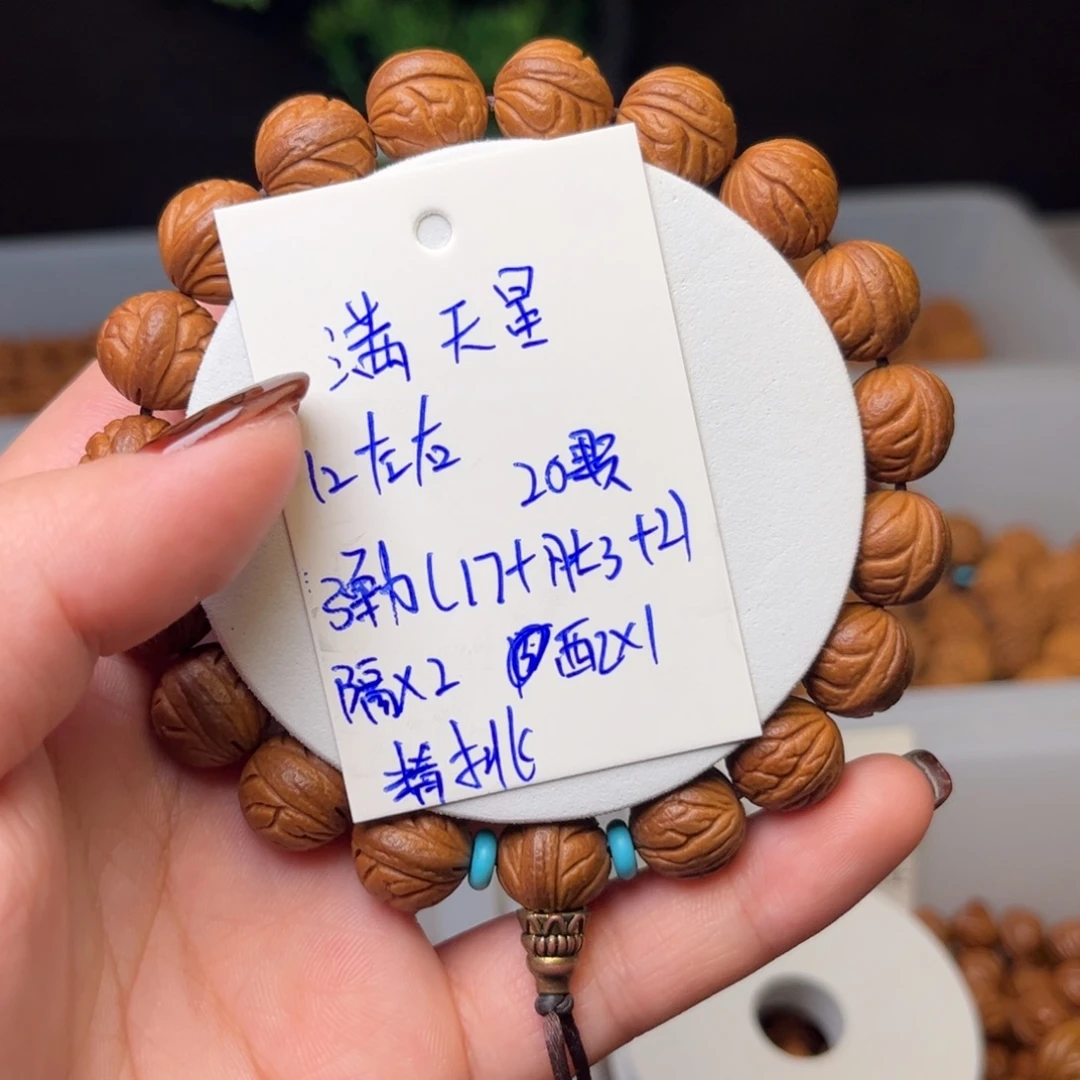 满天星
12左右 20颗
弹力(17+肚3+2)
隔x2 配2x1
精挑